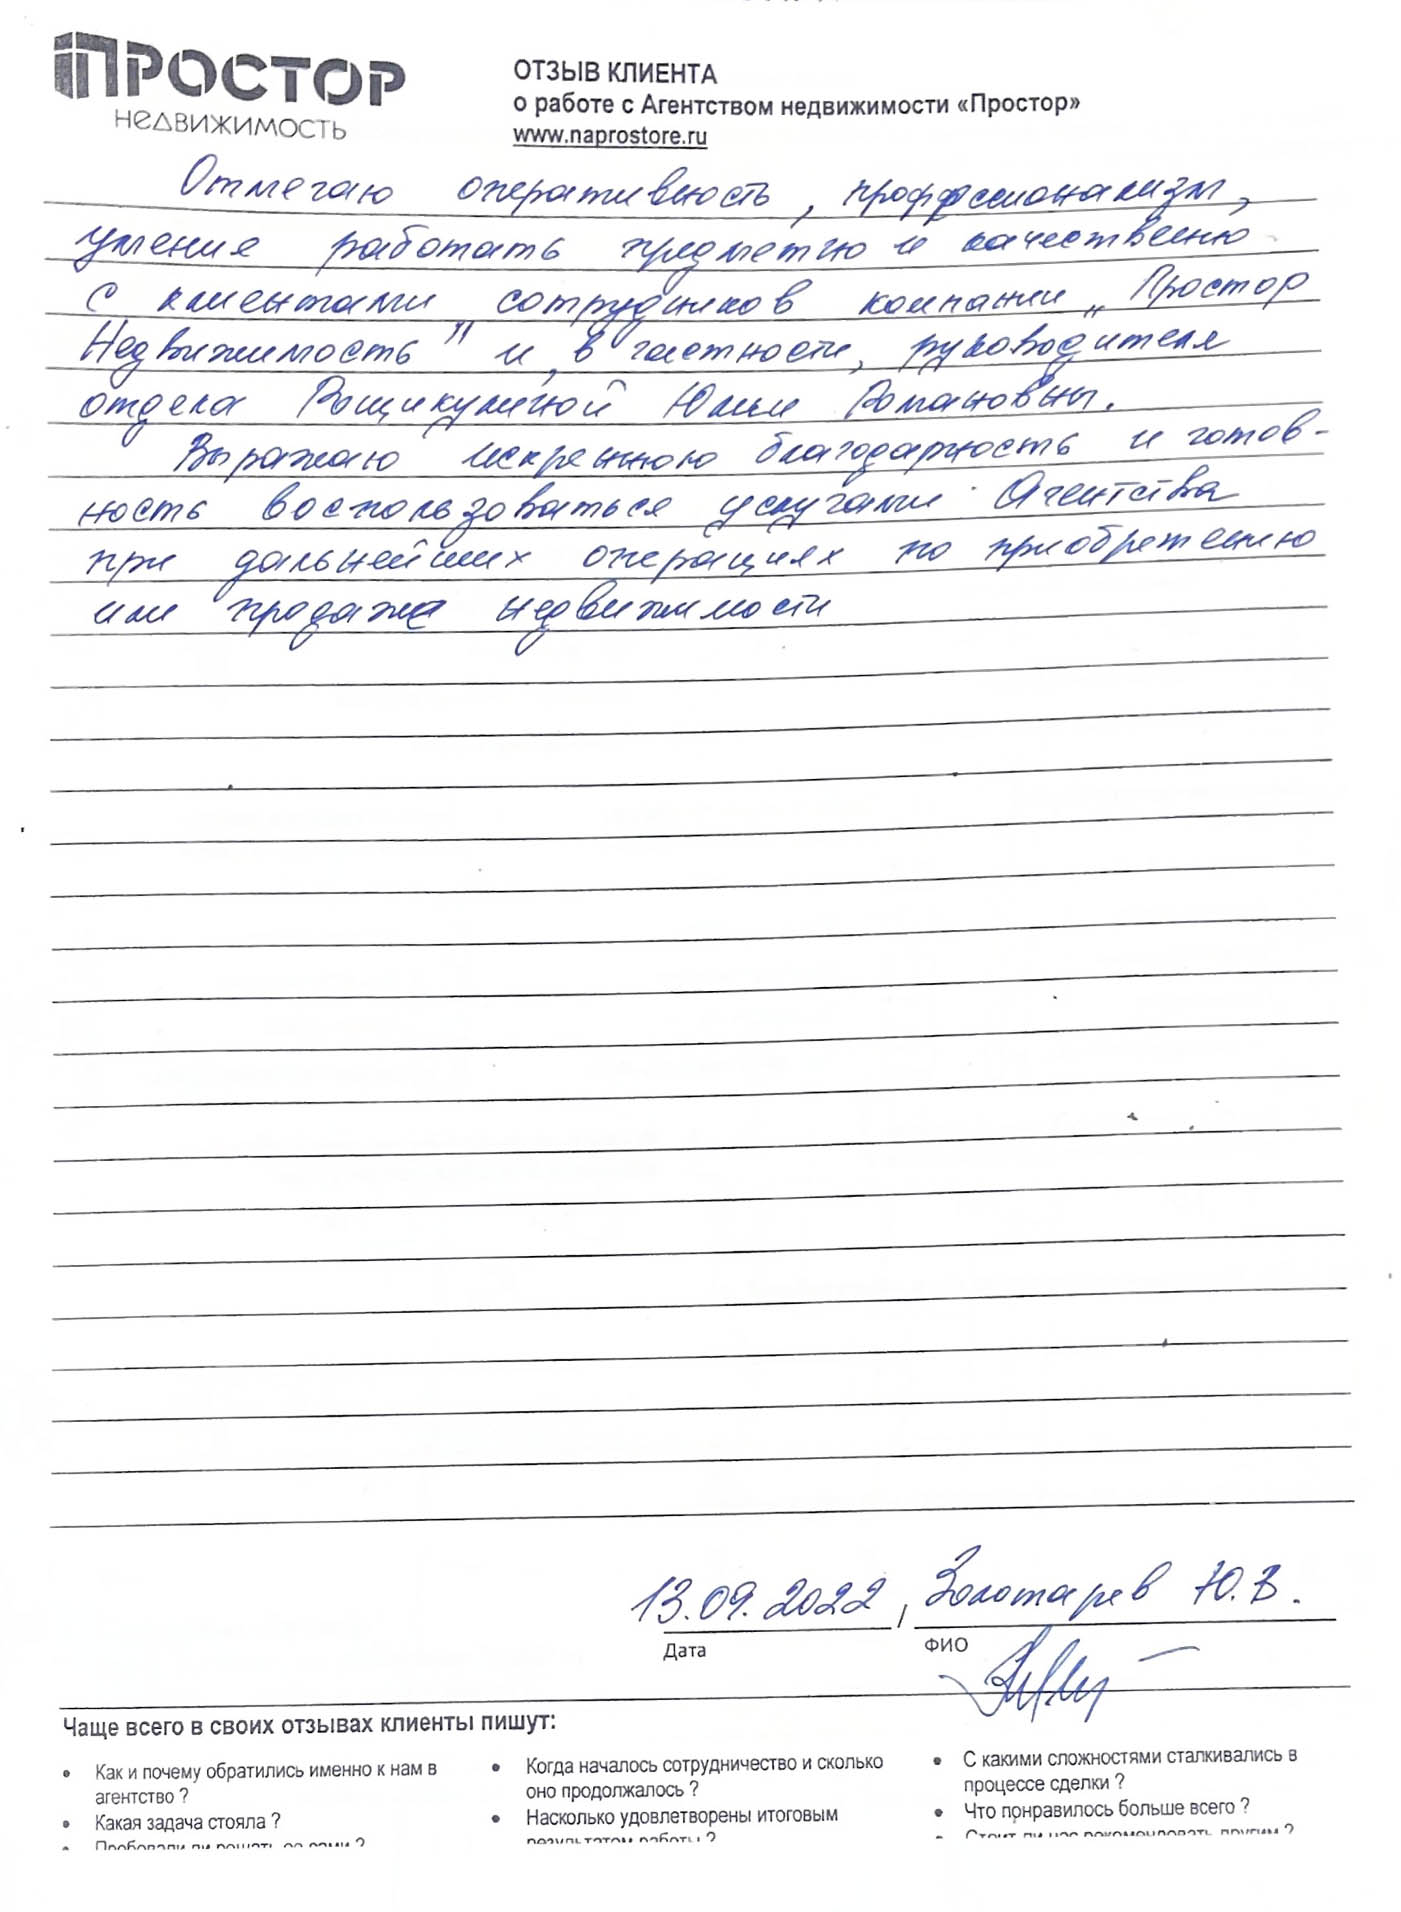 ПРОСТОР
НЕДВИЖИМОСТЬ
ОТЗЫВ КЛИЕНТА
о работе с Агентством недвижимости «Простор»
www.naprostore.ru
Отмечаю оперативность, профессионализм,
умение работать предметно и качественно
с клиентами сотрудников компании „Простор
Недвижимость" и, в частности, руководителя
отдела Рощикулиной Юлии Романовны.
Выражаю искреннюю благодарность и готов-
ность воспользоваться услугами Агентства
при дальнейших операциях по приобретению
или продаже недвижимости
13.09.2022, Золотарев Ю.В.
Дата ФИО
Чаще всего в своих отзывах клиенты пишут:
• Как и почему обратились именно к нам в
агентство ?
• Какая задача стояла ?
• Пробовали ли решать ее сами ?
• Когда началось сотрудничество и сколько
оно продолжалось ?
• Насколько удовлетворены итоговым
результатом работы ?
• С какими сложностями сталкивались в
процессе сделки ?
• Что понравилось больше всего ?
• Стоит ли нас рекомендовать другим ?